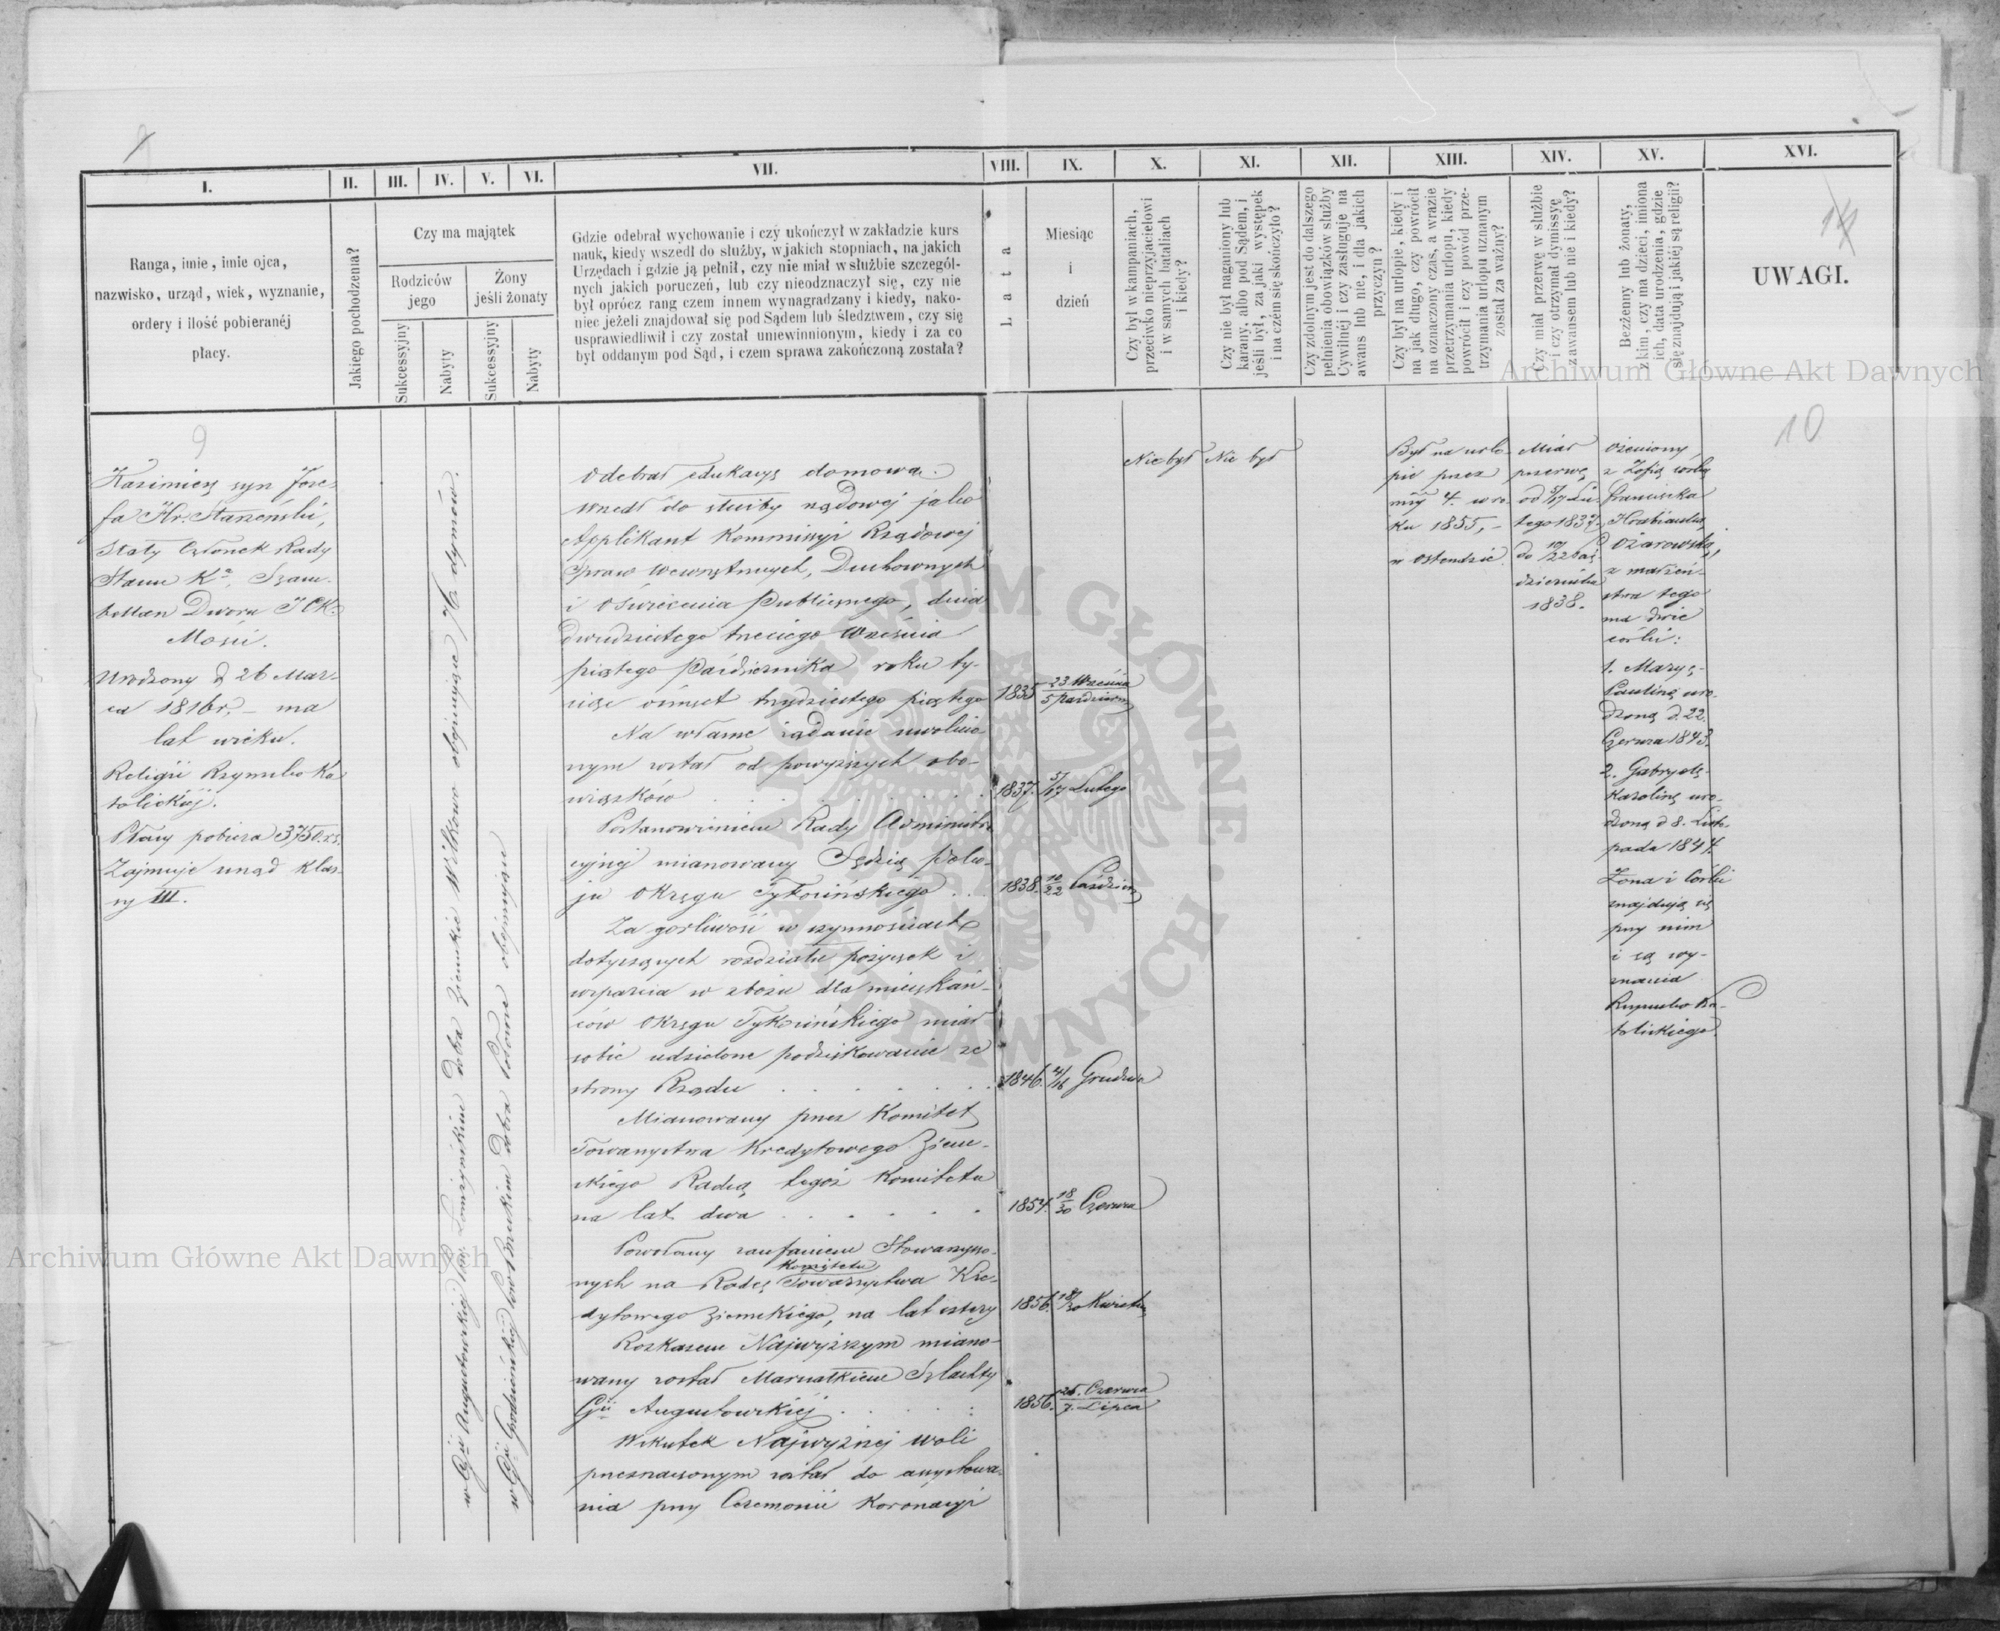 I.
II.
III.
IV.
V.
VI.
VII.
VIII.
IX.
X.
XI.
XII.
XIII.
XIV.
XV.
XVI.
Ranga, imie, imie ojca,
nazwisko, urząd, wiek, wyznanie,
ordery i ilość pobieranéj
płacy.
Jakiego pochodzenia?
Czy ma majątek
Rodziców
jego
Żony
jeśli żonaty
Sukcessyjny
Nabyty
Sukcessyjny
Nabyty
Gdzie odebrał wychowanie i czy ukończył w zakładzie kurs
nauk, kiedy wszedł do służby, w jakich stopniach, na jakich
Urzędach i gdzie ją pełnił, czy nie miał w służbie szczegól-
nych jakich poruczeń, lub czy nieodznaczył się, czy nie
był oprócz rang czem innem wynagradzany i kiedy, nako-
niec jeżeli znajdował się pod Sądem lub śledztwem, czy się
usprawiedliwił i czy został uniewinnionym, kiedy i za co
był oddanym pod Sąd, i czem sprawa zakończoną została?
Lata
Miesiąc
i
dzień
Czy był w kampaniach,
przeciwko nieprzyjacielowi
i w samych bataliach
i kiedy?
Czy nie był naganiony lub
karany, albo pod Sądem, i
jeśli był, za jaki występek
i na czém się skończyło?
Czy zdolnym jest do dalszego
pełnienia obowiązków służby
Cywilnéj i czy zasługuje na
awans lub nie, i dla jakich
przyczyn?
Czy był na urlopie, kiedy i
na jak długo, czy powrócił
na oznaczony czas, a wrazie
przetrzymania urlopu, kiedy
powrócił i czy powód prze-
trzymania urlopu uznanym
został za ważny?
Czy miał przerwę w służbie
i czy otrzymał dymissyę
z awansem lub nie i kiedy?
Bezżenny lub żonaty,
z kim, czy ma dzieci, imiona
ich, data urodzenia, gdzie
się znajdują i jakiéj są religii?
UWAGI.
10
9
Kazimierz syn Józe-
fa Hr. Starzeński,
Stały Członek Rady
Stanu Ka, Szam-
bellan Dworu JCK.
Mości.
Urodzony d 26 Mar-
ca 1816 r, – ma
lat wieku.
Religii Rzymsko Ka
tolickiéj.
Płacy pobiera 3750 rs.
Zajmuje urząd klas-
sy III.
w Gii Augustowskiéj Pow. Łomżyńskim dobra ziemskie Witkowo obejmujące 76 dymów.
w Gii Grodzieńskiéj dobra obejmujące
Odebrał edukacyę domową.
Wszedł do służby rządowej jako
Applikant Kommissyi Rządowej
Spraw Wewnętrznych, Duchownych
i Oświecenia Publicznego, dnia
dwudziestego trzeciego Września
piątego Października roku ty-
siąc ósmset trzydziestego piątego
1835 23. Września
5 Październ.
Na własne żądanie uwolnio-
nym został od powyższych obo-
wiązków . . . . . . .
1837. 5/17 Lutego
Postanowieniem Rady Administra
cyjnej mianowany Sędzią Poko-
ju Okręgu Tykocińskiego . .
1838. 10/22 Paździer.
Za gorliwość w czynnościach
dotyczących rozdziału pożyczek i
wsparcia w zbożu dla mieszkań-
ców Okręgu Tykocińskiego miał
sobie udzielone podziękowanie ze
strony Rządu . . . . . .
1846. 4/16 Grudnia
Mianowany przez Komitet
Towarzystwa Kredytowego Ziem-
skiego Radcą tegoż Komitetu
na lat dwa . . . . . .
1854. 18/30 Czerwca
Powołany zaufaniem Stowarzyszo-
nych na Radcę Komitetu Towarzystwa Kre-
dytowego Ziemskiego, na lat cztery
1856. 18/30 Kwietnia
Rozkazem Najwyższym miano-
wany został Marszałkiem Szlachty
Gii Augustowskiéj . . . . :
1856. 25. Czerwca
7. Lipca
Wskutek Najwyższej woli
przeznaczonym został do assystowa-
nia przy Ceremonii Koronacyi
Nie był
Nie był
Był na urlo-
pie przez
mcy 4. w ro-
ku 1855, –
w Ostendzie
Miał
przerwę
od 5/17 Lu-
tego 1837.
do 10/22 Paź
dziernika
1838.
Ożeniony
z Zofią córką
Franciszka
Hrabianką
Ożarowską,
z małżeń-
stwa tego
ma dwie
córki:
1. Maryę-
Paulinę uro-
dzoną d. 22.
Czerwca 1843.
2. Gabryelę-
Karolinę uro-
dzoną d 8. Listo-
pada 1844.
Żona i Córki
znajdują się
przy nim
i są wy-
znania
Rzymsko Ka-
tolickiego.
Archiwum Główne Akt Dawnych
Archiwum Główne Akt Dawnych
ARCHIWUM GŁÓWNE AKT DAWNYCH